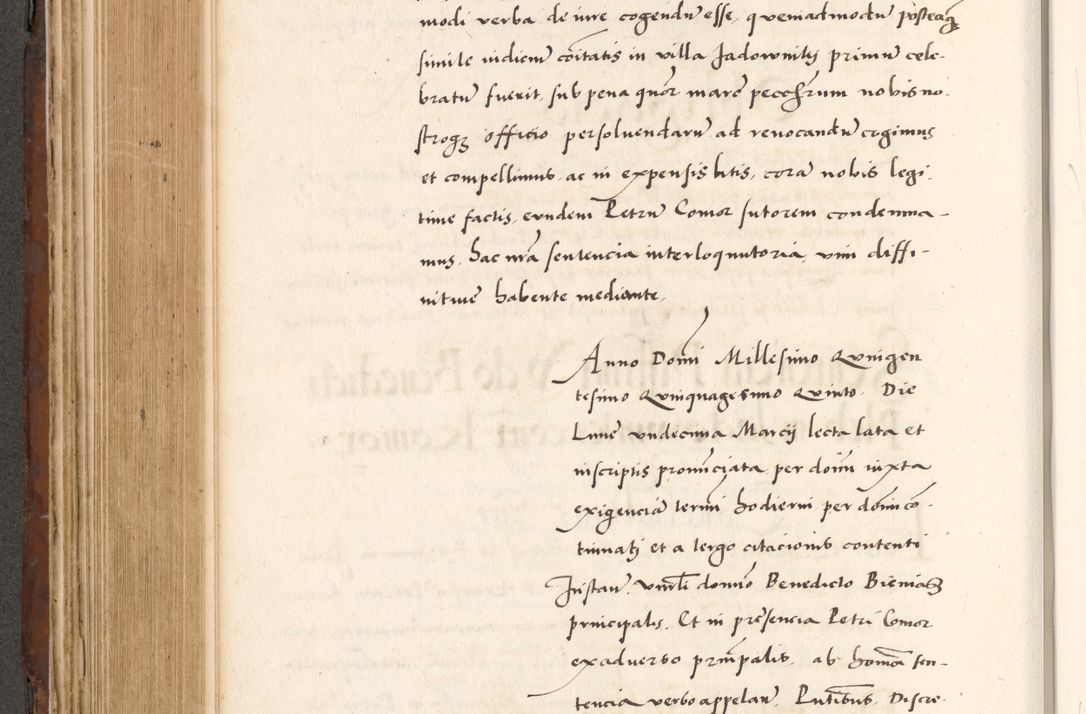 modi verba de iure cogendũ esse, quemadmodũ posteaq̃
simile iudiciũ cõitatis in villa Jadowniky primũ cele-
bratũ fuerit, sub pena quor marc pecc̃arum nobis no-
stroq; officio persoluendarũ ad reuocandũ cogimus
et compellimus. ac in expensis litis, corã nobis legi-
time factis, eundem Petrũ Comor sutorem condemna-
mus. Hac nrã sentencia interloquutoria, vim diffi-
nitiue habente mediante.
Anno Domĩ Millesimo Quingen
tesimo Quinquagesimo Quinto. Die
Lune vndecima Marcij lecta lata et
inscriptis pronũciata per doim̃ iuxta
exigenciã termĩ hodierni per domĩ cõ-
tinuatj et a tergo citacionis contenti
Instañ. Vnrli domĩo Benedicto Bieniasz
principalj. Et in presencia Petri Comor
exaduerso prinpalis. ab homõi sen-
tencia verbo appelañ. Pñtibus, Discre-